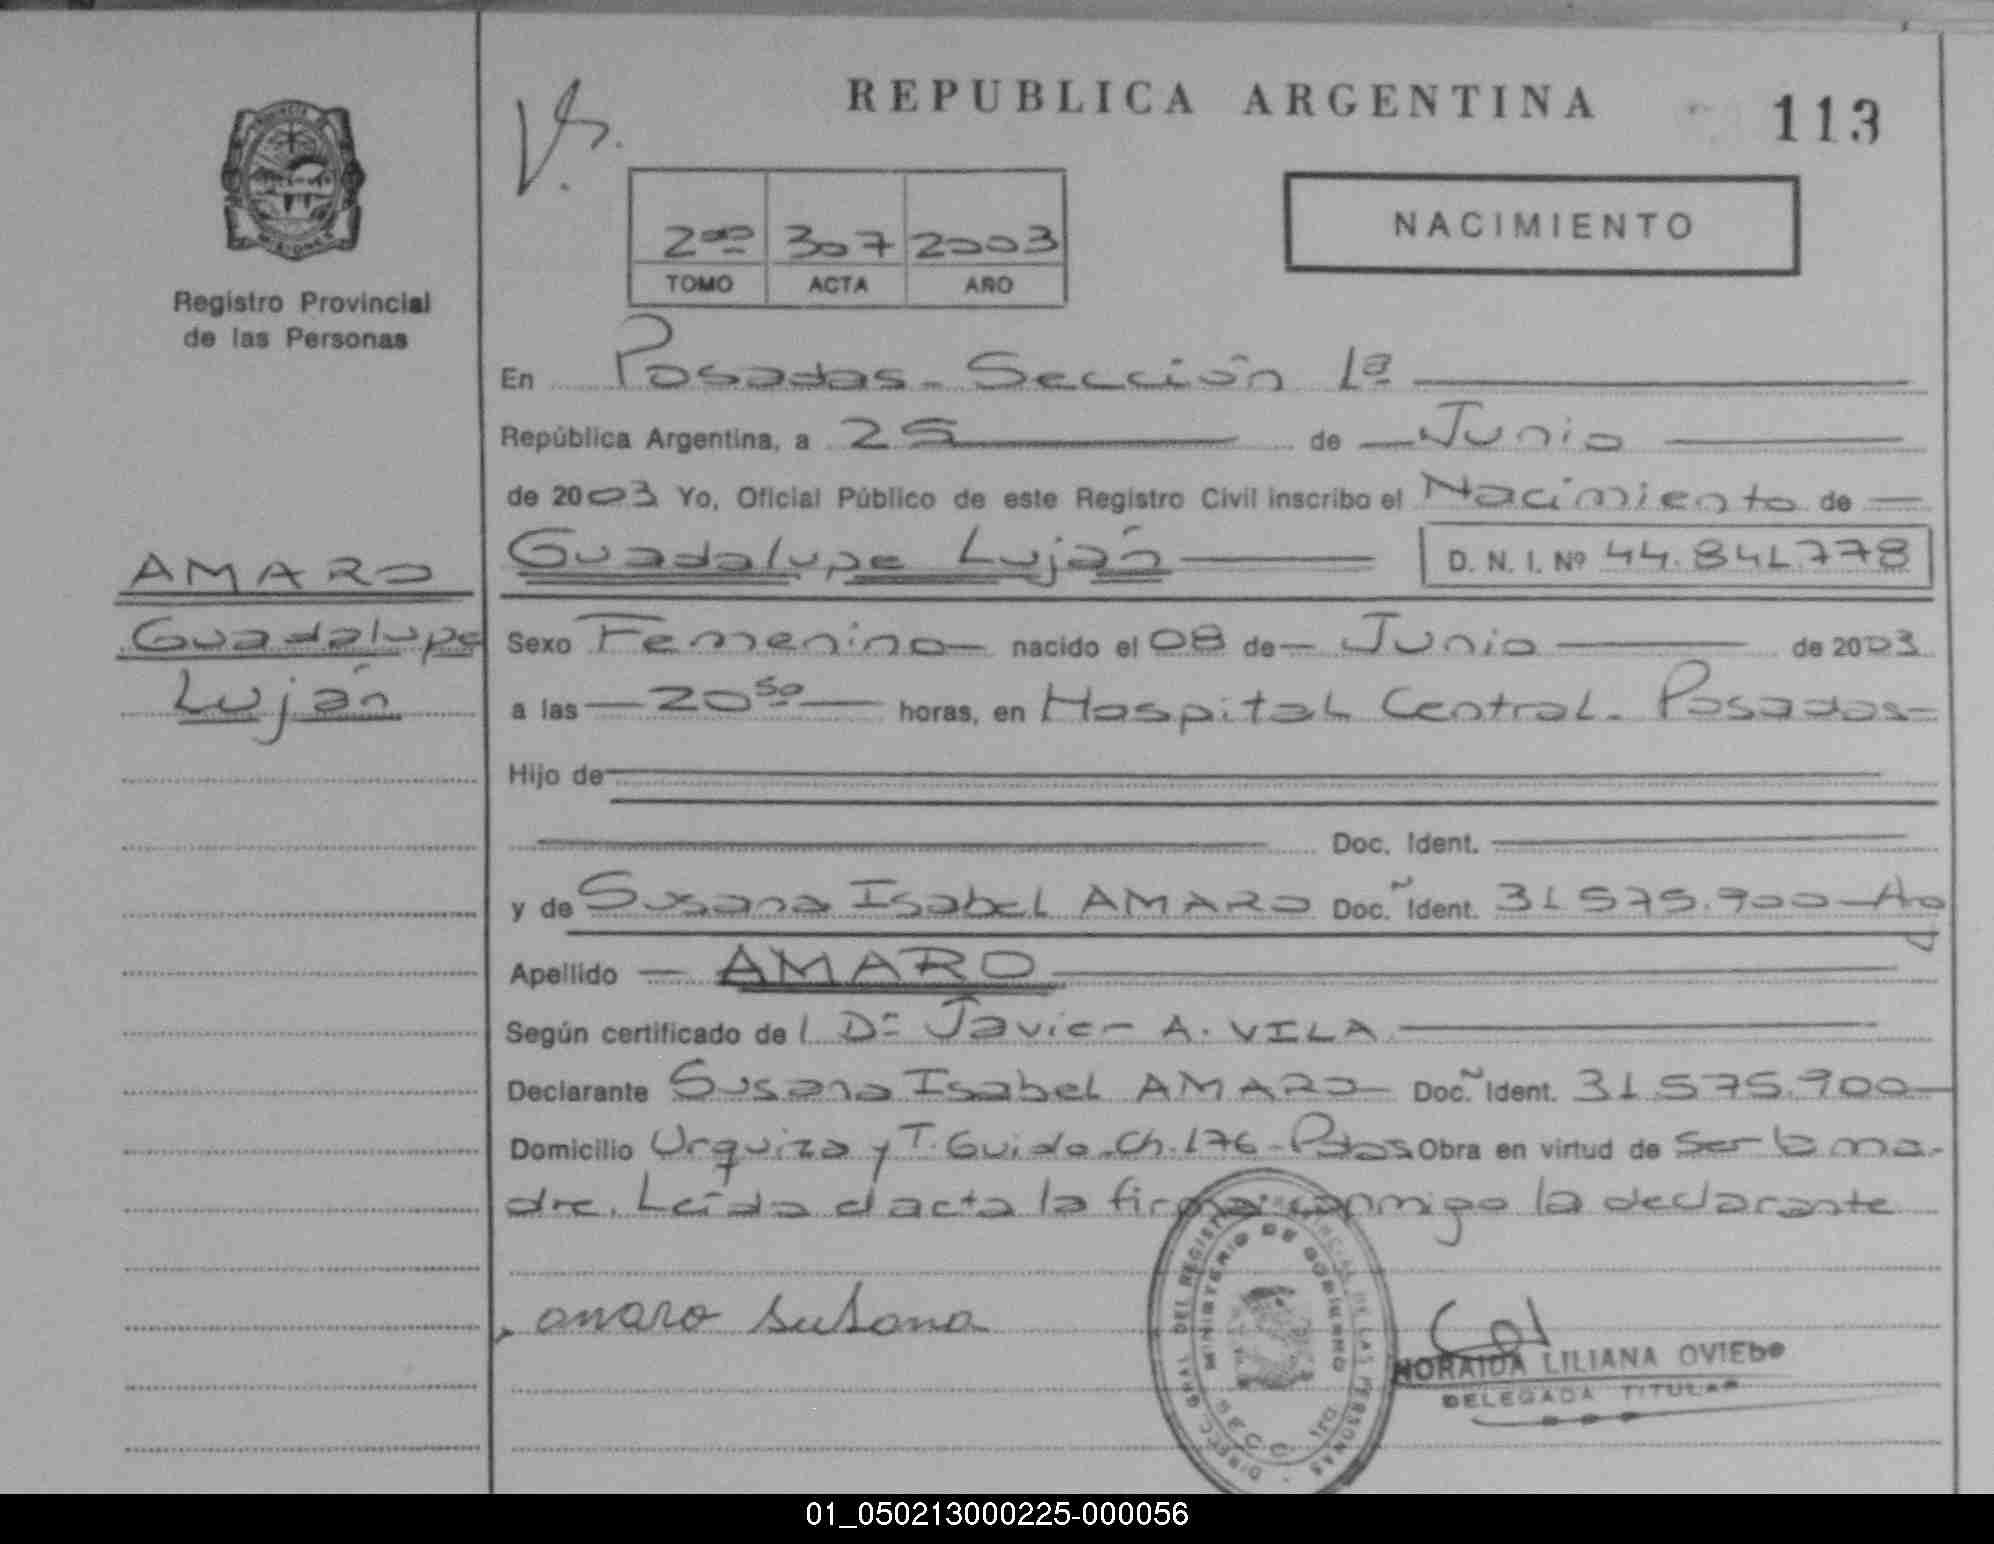 REPUBLICA ARGENTINA
113
NACIMIENTO
2do 307 2003
TOMO ACTA AÑO
Registro Provincial
de las Personas
En Posadas - Sección 1ª
República Argentina, a 25 de Junio
de 2003 Yo, Oficial Público de este Registro Civil inscribo el Nacimiento de
Guadalupe Luján D. N. I. Nº 44.841.778
AMARO
Guadalupe
Luján
Sexo Femenino nacido el 08 de Junio de 2003
a las 20 50 horas, en Hospital Central - Posadas
Hijo de
Doc. Ident.
y de Susana Isabel AMARO Doc. Ident. 31.575.900 - Arg
Apellido AMARO
Según certificado del Dr Javier A. VILA
Declarante Susana Isabel AMARO Doc. Ident. 31.575.900
Domicilio Urquiza y T. Guido - Ch. 176 - Pdas Obra en virtud de ser la ma-
dre. Leída el acta la firma conmigo la declarante
amaro susana
DIRECC. GRAL DEL REGISTRO PROVINCIAL DE LAS PERSONAS
MINISTERIO DE GOBIERNO
NORAIDA LILIANA OVIEDO
DELEGADA TITULAR
01_050213000225-000056